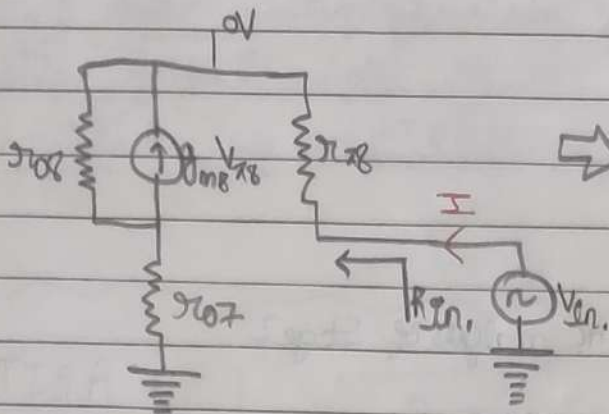 0V
r08
gm8 Vπ8
rπ8
I
r07
RIn.
Vin.